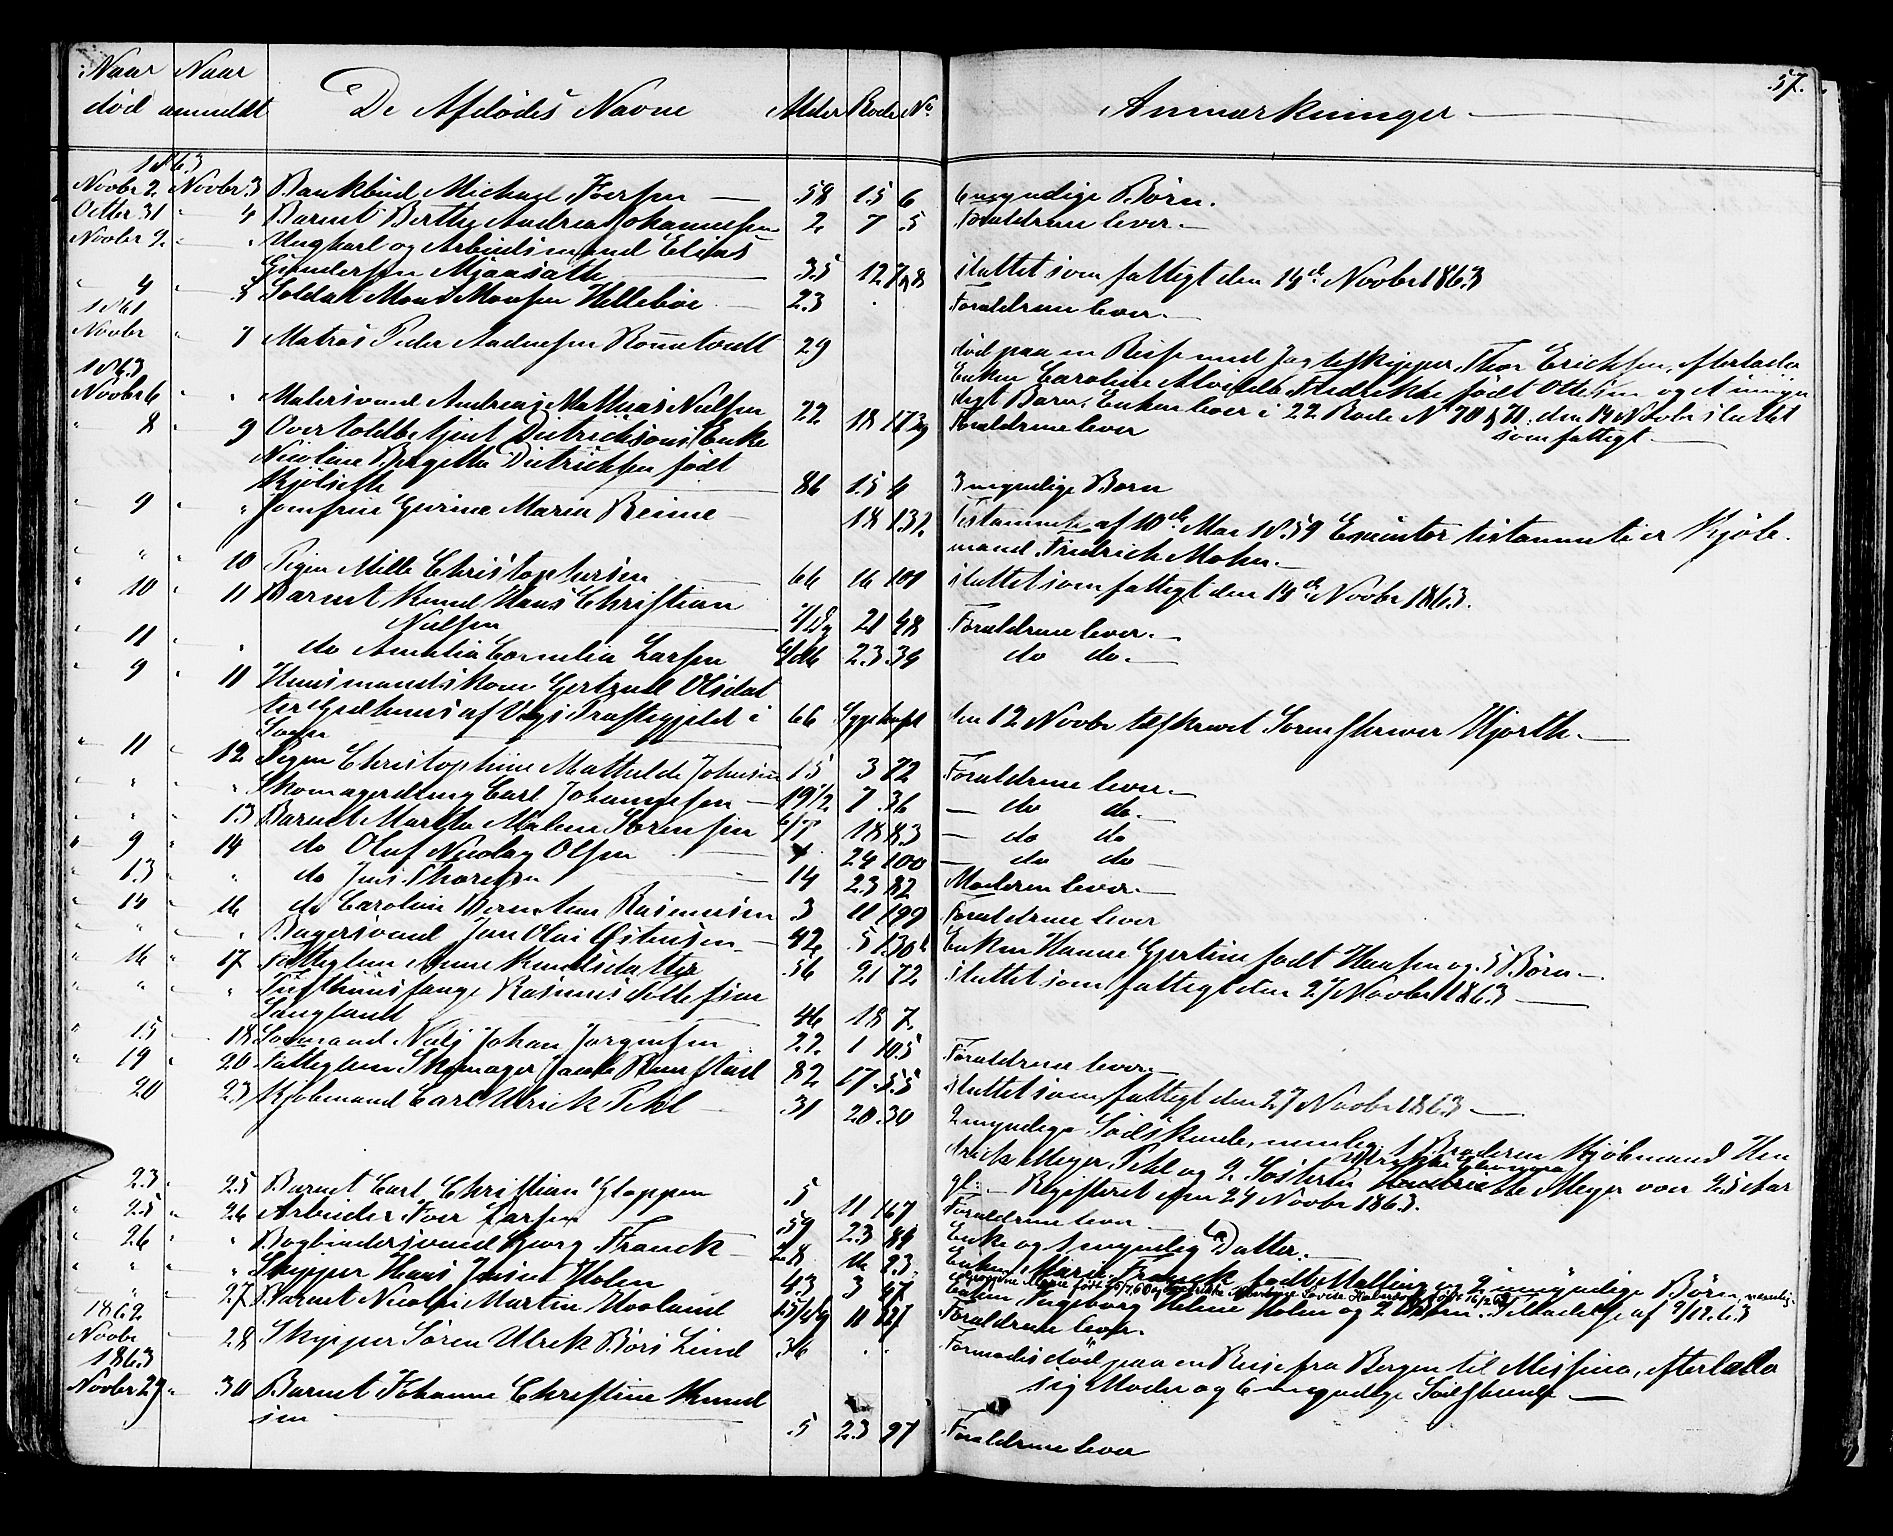 57.
Naar død
Naar anmeldt
De Afdødes Navne
Alder
Rode
No
Anmærkninger
1863
Novbr 2. Novbr 3 Bankbud Michael Iversen 58 15 6 6 myndige Børn.
Octbr 31 " 4 Barnet Berthe Andrea Johannessen 2 7 5 Forældrene lever.
Novbr 2. " " Ungkarl og Arbeidsmand Elias
Gundersen Mjaasath 35 12 sluttet som fattigt den 14de Novbr 1863
" 4 " 5 Soldat Mons Monsen Hellebøe 23 Forældrene lever.
1861
Novbr " 7 Matros Peder Aadnesen Rommetvedt 29 død paa en Reise med Jagteskipper Thor Erichsen, efterlader
Enken Caroline Alvilde Fredrikke født Ottesen og 1 umyn
1863
Novbr 6 " " Malersvend Andreas Mathias Nielsen 22 18 173 Forældrene lever
digt Barn, Enken lever i 22 Rode No 70 & 71. den 14 Novbr sluttet
som fattigt
" 8 " 9 Overtoldbetjent Dietrichsons Enke
Nicoline Bergitha Dietrichsen født
Kjølseth 86 15 4 3 myndige Børn
" 9 " " Jomfrue Gurine Maria Beime 18 132 Testamente af 10de Mai 1859 Executor testamenti er Kjøb-
mand Fredrich Mohn.
" " " 10 Pigen Mille Christophersen 66 16 101 sluttet som fattigt den 14de Novbr 1863.
" 10 " 11 Barnet Knud Hans Christian
Nielsen 21 48 Forældrene lever.
" 11 " " do Amalia Cornelia Larsen 23 39 do do.
" 9 " 11 Huusmandskone Gertrud Olsdat
ter Gjelhuus af Viigs Præstegjeld i
Sogn 66 Sygehuset den 12 Novbr tilskrevet Sorenskriver Hjorth.
" 11 " 12 Pigen Christophine Mathilde Johnsen 15 3 72 Forældrene lever.
" " " " Skomagerdreng Carl Johannesen 19 1/2 7 36 do do.
" " " 13 Barnet Martha Malene Sørensen 18 83 do do
" 9 " 14 do Oluf Nicolay Olsen 24 100 do do
" 13 " " do Jens Thoresen 14 23 82 Moderen lever.
" 14 " 16 do Caroline Berntine Rasmussen 3 11 199 Forældrene lever
" " " " Bagersvend Jan Olai Østensen 42 5 130b Enken Hanne Gjertine født Hansen og 5 Børn
" 16 " 17 Fattiglem Anne Knudsdatter 56 21 72 sluttet som fattigt den 27 Novbr 1863
" " " " Tugthuusfange Rasmus Tollefsen
Langland 46 18 7
" 15 " 18 Sømand Nils Johan Jørgensen 22 1 105 Forældrene lever
" 19 " 20 Fattiglem Skomager Jacob 82 17 55 sluttet som fattigt den 27 Novbr 1863
" 20 " 23 Kjøbmand Carl Ulrick Pihl 31 20 30 2 myndige Sødskende, nemlig 1 Broderen Kjøbmand Hen
drick Meyer Pihl og 2 Søsteren Meyer over 25 Aar
gl. Registeret den 24 Novbr 1863.
" 23 " 25 Barnet Carl Christian Gloppen 5 11 167 Forældrene lever
" 25 " 26 Arbeider Iver Larsen 59 23 89 Enke og 1 myndig Datter.
" 26 " " Bogbindersvend Georg Franck 28 16 23 Enken Maria Franck født Malling og 2 umyndige Børn, nemlig
" " " " Skipper Hans Jensen Holm 43 3 47 Enken Ingeborg Helene Holm og 2 Børn. af 9/12.63
" " " 27 Barnet Nicolai Martin Hosland 11 Forældrene lever.
1862
Novbr 28 Skipper Søren Ulrik Børs Lind 36 Formodes død paa en Reise fra Bergen til Messina, efterladt
sig Moder og 6 myndige Sødskende
1863
Novbr 29 " 30 Barnet Johanne Christine Knud
sen 5 23 97 Forældrene lever